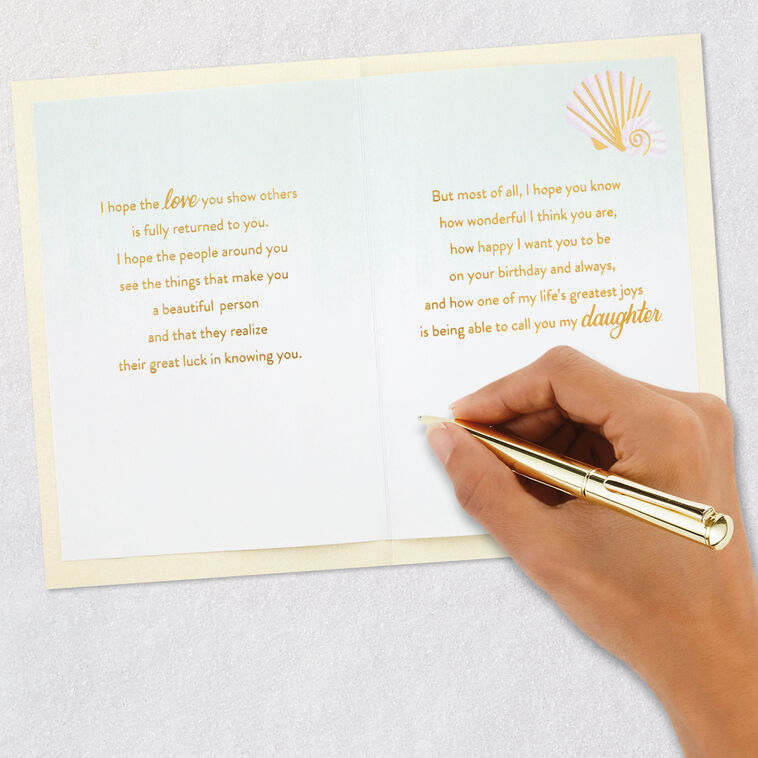 I hope the love you show others
is fully returned to you.
I hope the people around you
see the things that make you
a beautiful person
and that they realize
their great luck in knowing you.
But most of all, I hope you know
how wonderful I think you are,
how happy I want you to be
on your birthday and always,
and how one of my life's greatest joys
is being able to call you my daughter.